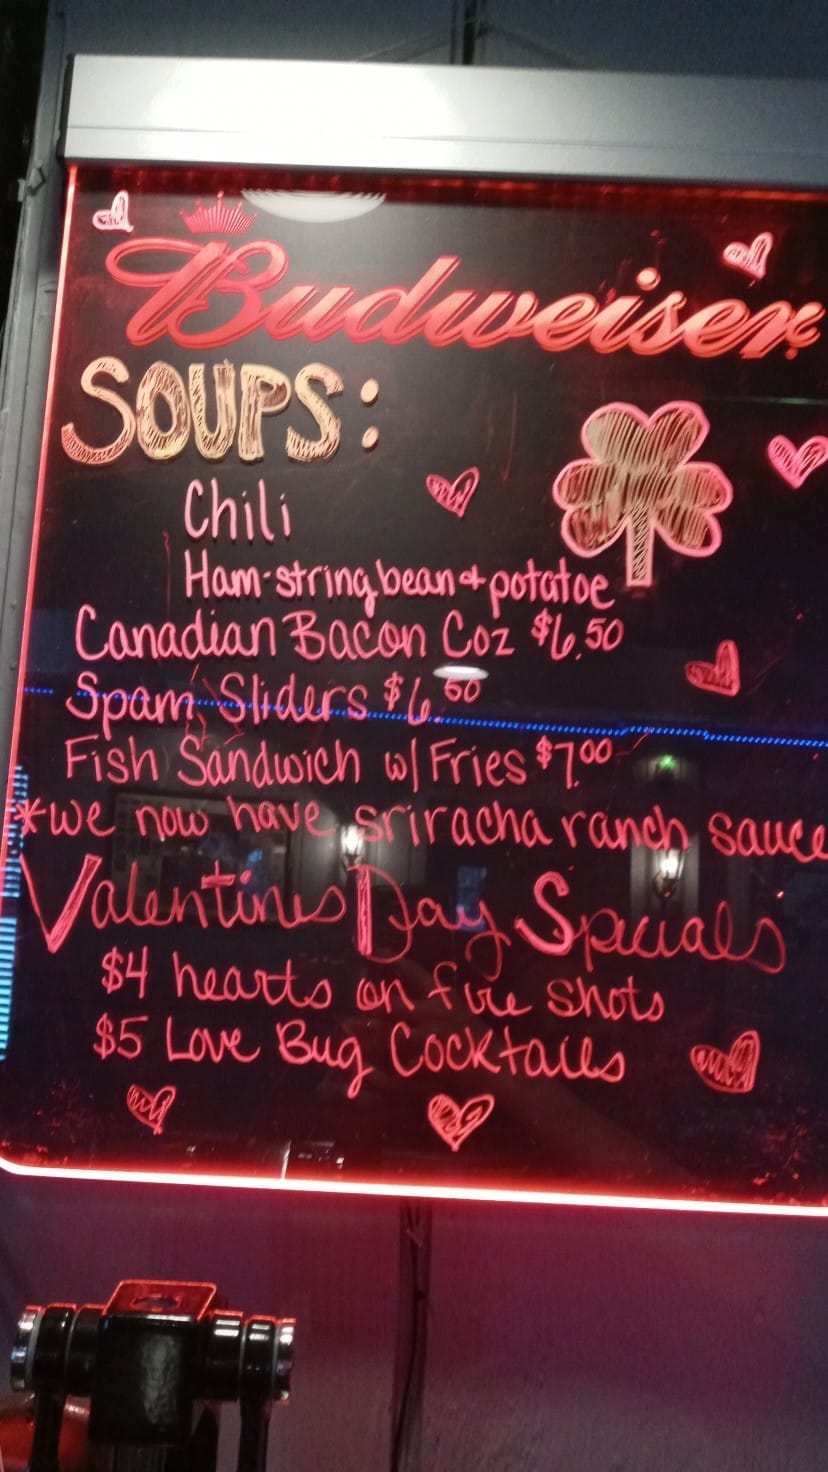 Budweiser
SOUPS:
Chili
Ham-stringbean & potatoe
Canadian Bacon Coz $6.50
Spam Sliders $6.50
Fish Sandwich w/ Fries $7.00
*we now have sriracha ranch sauce
Valentines Day Specials
$4 hearts on fire shots
$5 Love Bug Cocktails